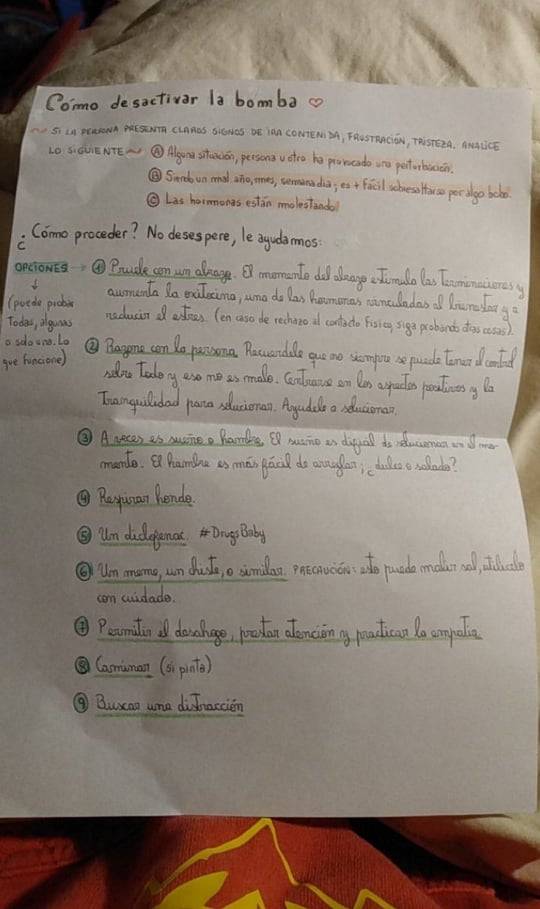 Cómo desactivar la bomba ♡
SI LA PERSONA PRESENTA CLAROS SIGNOS DE IRA CONTENIDA, FRUSTRACIÓN, TRISTEZA. ANALICE
LO SIGUIENTE Ⓐ Alguna situación, persona u otro ha provocado una perturbación.
Ⓑ Siendo un mal año, mes, semana dia; es + fácil sobresaltarse por algo bobo.
Ⓒ Las hormonas están molestando
¿Cómo proceder? No desespere, le ayudamos:
OPCIONES → ① Pruebe con un abrazo. El momento del abrazo estimula las terminaciones y
aumenta la oxitocina, una de las hormonas vinculadas al bienestar y a
reducir el estres. (en caso de rechazo al contacto físico, siga probando otras cosas).
(puede probar
Todas, algunas
o solo una. Lo
que funcione)
② Razone con la persona. Recuerdele que no siempre se puede tener el control
sobre todo y eso no es malo. Centrarse en los aspectos positivos y la
tranquilidad para solucionar. Ayudele a solucionar.
③ A veces es sueño o hambre. El sueño es dificil de solucionar en el mo-
mento. El hambre es más fácil de arreglar; ¿dulce o salado?
④ Respirar hondo.
⑤ Un diclofenac #DrugsBaby
⑥ Un meme, un chiste, o similar. PRECAUCIÓN: esto puede malir sal, utilicelo
con cuidado.
⑦ Permitir el desahogo, prestar atención y practicar la empatía
⑧ Caminar (si pinta)
⑨ Buscar una distracción